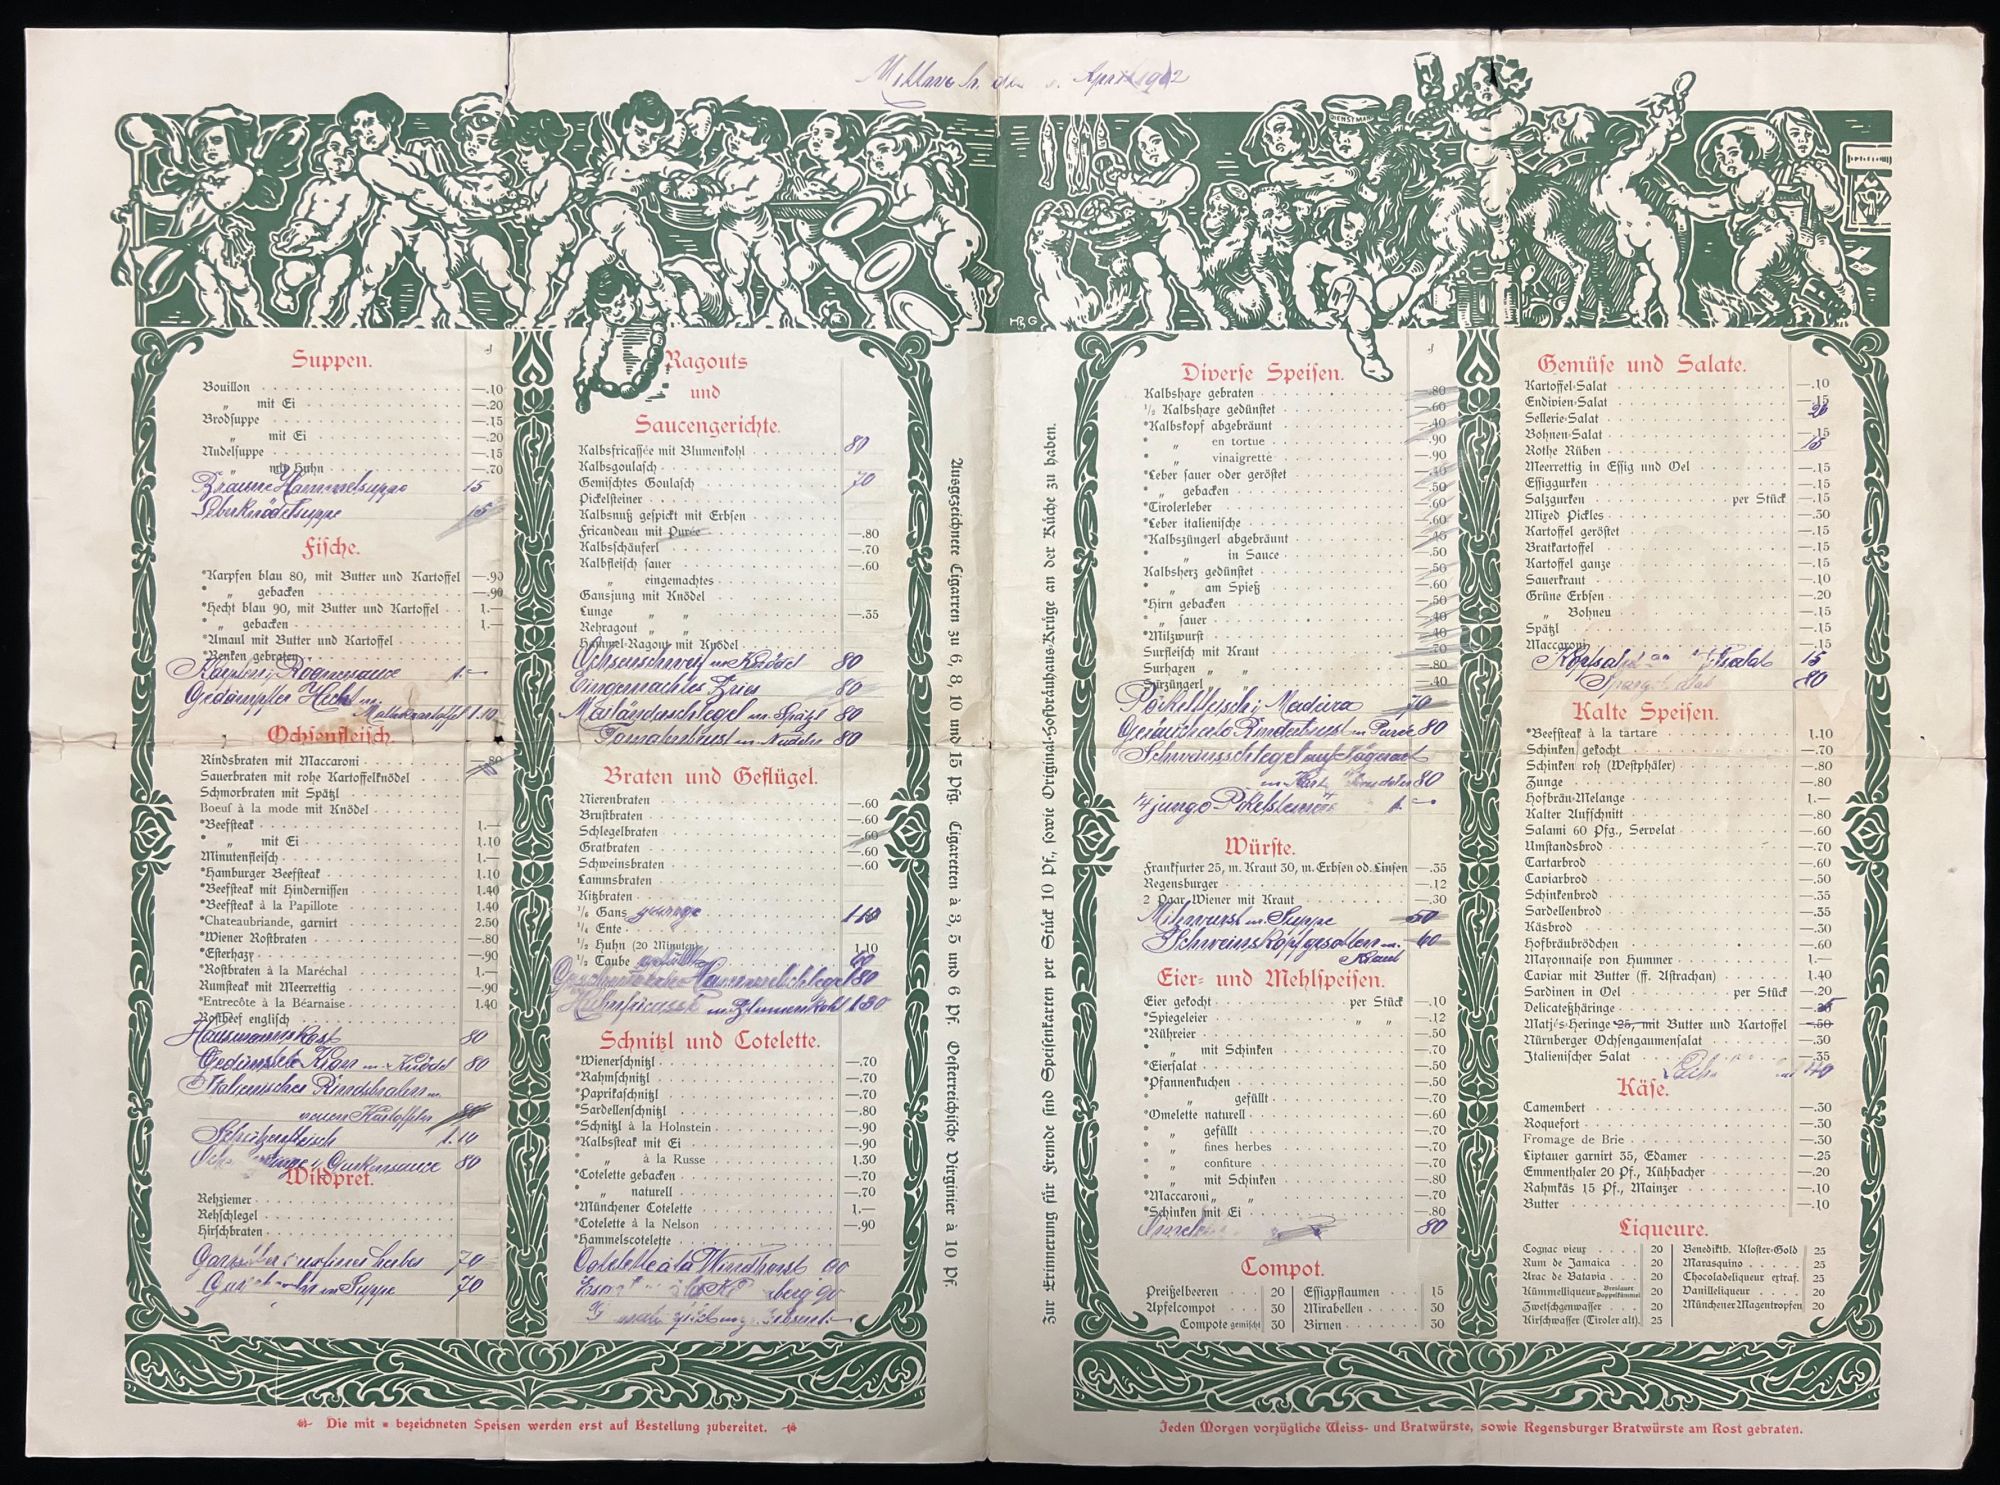 Mittwoch, den . April 1902
DIENSTMAN
HBG
Suppen.
Bouillon —.10
„ mit Ei —.20
Brodsuppe —.15
„ mit Ei —.20
Nudelsuppe —.15
mit Huhn —.70
Braune Hammelsuppe 15
Leberknödelsuppe 15
Fische.
*Karpfen blau 80, mit Butter und Kartoffel —.90
* „ gebacken —.90
*Hecht blau 90, mit Butter und Kartoffel 1.—
* „ gebacken 1.—
*Amaul mit Butter und Kartoffel
*Renken gebraten
Karpfen i. Rogensauce 1.—
Gedämpfter Hecht m.
Kartoffel 1.10
Ochsenfleisch.
Rindsbraten mit Maccaroni —.80
Sauerbraten mit rohe Kartoffelknödel
Schmorbraten mit Spätzl
Boeuf à la mode mit Knödel
*Beefsteak 1.—
* „ mit Ei 1.10
Minutenfleisch 1.—
*Hamburger Beefsteak 1.10
*Beefsteak mit Hindernissen 1.40
*Beefsteak à la Papillote 1.40
*Chateaubriande, garnirt 2.50
*Wiener Rostbraten —.80
*Esterhazy —.90
*Rostbraten à la Maréchal 1.—
Rumsteak mit Meerrettig —.90
*Entrecôte à la Béarnaise 1.40
Rostbeef englisch
Hausmannskost 80
Gedünstete m. Knödel 80
Italienischer Rindsbraten m.
neuen Kartoffeln 80
1.10
i. Gurkensauce 80
Wildpret.
Rehziemer
Rehschlegel
Hirschbraten
fines herbes 70
in Suppe 70
Ragouts
und
Saucengerichte.
Kalbsfricassée mit Blumenkohl 80
Kalbsgoulasch
Gemischtes Goulasch 70
Pickelsteiner
Kalbsnuß gespickt mit Erbsen
Fricandeau mit Purée —.80
Kalbsschäuferl —.70
Kalbfleisch sauer —.60
„ eingemachtes
Gansjung mit Knödel
Lunge „ „ —.35
Rehragout „ „
Hammel-Ragout mit Knödel
Ochsenschweif m. Knödel 80
Eingemachtes Bries 80
Mailänderschlegel m. Spätzl 80
m. Nudeln 80
Braten und Geflügel.
Nierenbraten —.60
Brustbraten —.60
Schlegelbraten —.60
Gratbraten —.60
Schweinsbraten —.60
Lammsbraten
Kitzbraten
¹/₆ Gans junge 1.10
¹/₄ Ente
¹/₂ Huhn (20 Minuten) 1.10
¹/₂ Taube gefüllt 60
Hammelschlegel 80
Huhnfricassé m. Blumenkohl 1.30
Schnitzl und Cotelette.
*Wienerschnitzl —.70
*Rahmschnitzl —.70
*Paprikaschnitzl —.70
*Sardellenschnitzl —.80
*Schnitzl à la Holnstein —.90
*Kalbsteak mit Ei —.90
* „ à la Russe 1.30
*Cotelette gebacken —.70
* „ naturell —.70
*Münchener Cotelette 1.—
*Cotelette à la Nelson —.90
*Hammelscotelette
Cotelette à la Windhorst 90
berg 90
Ausgezeichnete Cigarren zu 6, 8, 10 und 15 Pfg. Cigaretten à 3, 5 und 6 Pf. Oesterreichische Virginier à 10 Pf.
Die mit * bezeichneten Speisen werden erst auf Bestellung zubereitet.
Zur Erinnerung für Fremde sind Speisenkarten per Stück 10 Pf., sowie Original-Hofbräuhaus-Krüge an der Küche zu haben.
Diverse Speisen.
Kalbshaxe gebraten —.80
¹/₂ Kalbshaxe gedünstet —.60
*Kalbskopf abgebräunt —.40
* „ en tortue —.90
* „ vinaigrette —.90
*Leber sauer oder geröstet —.40
* „ gebacken —.50
*Tirolerleber —.60
*Leber italienische —.60
*Kalbszüngerl abgebräunt —.45
* „ in Sauce —.50
Kalbsherz gedünstet —.50
* „ am Spieß —.60
*Hirn gebacken —.50
* „ sauer —.40
*Milzwurst —.40
Surfleisch mit Kraut —.70
Surhaxen „ „ —.80
Surzüngerl —.40
Pöckelfleisch i. Madeira 70
Geräucherte Rinderbrust m. Purée 80
Schweinsschlegel auf Jägerart
80
¼ junge 1.—
Würste.
Frankfurter 25, m. Kraut 30, m. Erbsen od. Linsen —.35
Regensburger —.12
2 Paar Wiener mit Kraut —.30
Milzwurst in Suppe 50
Schweinskopf gesotten m. 60
Kraut
Eier- und Mehlspeisen.
Eier gekocht per Stück —.10
*Spiegeleier „ „ —.12
*Rühreier —.50
* „ mit Schinken —.70
*Eiersalat —.50
*Pfannenkuchen —.50
* „ gefüllt —.70
*Omelette naturell —.60
* „ gefüllt —.70
* „ fines herbes —.70
* „ confiture —.70
* „ mit Schinken —.80
*Maccaroni „ „ —.70
*Schinken mit Ei —.80
80
Compot.
Preißelbeeren 20
Apfelcompot 30
Compote gemischt 30
Essigpflaumen 15
Mirabellen 30
Birnen 30
Gemüse und Salate.
Kartoffel-Salat —.10
Endivien-Salat —.15
Sellerie-Salat 20
Bohnen-Salat —.15
Rothe Rüben 15
Meerrettig in Essig und Oel —.15
Essiggurken —.15
Salzgurken per Stück —.15
Mixed Pickles —.30
Kartoffel geröstet —.15
Bratkartoffel —.15
Kartoffel ganze —.15
Sauerkraut —.10
Grüne Erbsen —.20
„ Bohnen —.15
Spätzl —.15
Maccaroni —.15
Kopfsalat 15
80
Kalte Speisen.
*Beefsteak à la tartare 1.10
Schinken gekocht —.70
Schinken roh (Westphäler) —.80
Zunge —.80
Hofbräu-Melange 1.—
Kalter Aufschnitt —.80
Salami 60 Pfg., Servelat —.60
Umstandsbrod —.70
Tartarbrod —.60
Caviarbrod —.50
Schinkenbrod —.35
Sardellenbrod —.35
Käsbrod —.30
Hofbräubrödchen —.60
Mayonnaise von Hummer 1.—
Caviar mit Butter (ff. Astrachan) 1.40
Sardinen in Oel per Stück —.20
Delicateßhäringe 25
Matjes-Heringe 25, mit Butter und Kartoffel —.50
Nürnberger Ochsengaumensalat —.30
Italienischer Salat —.35
Käse.
Camembert —.30
Roquefort —.30
Fromage de Brie —.30
Liptauer garnirt 35, Edamer —.25
Emmenthaler 20 Pf., Kühbacher —.20
Rahmkäs 15 Pf., Mainzer —.10
Butter —.10
Liqueure.
Cognac vieux 20
Rum de Jamaica 20
Arac de Batavia 20
Kümmelliqueur Breslauer Doppelkümmel 20
Zwetschgenwasser 20
Kirschwasser (Tiroler alt). 25
Benediktb. Kloster-Gold 25
Marasquino 25
Chocoladeliqueur extraf. 25
Vanilleliqueur 20
Münchener Magentropfen 20
Jeden Morgen vorzügliche Weiss- und Bratwürste, sowie Regensburger Bratwürste am Rost gebraten.